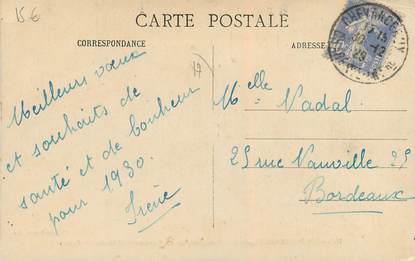 15 €
CARTE POSTALE
CORRESPONDANCE
ADRESSE
Meilleurs vœux
et souhaits de
santé et de bonheur
pour 1930.
Irène
19
Melle Nadal
25 rue Nauville 25
Bordeaux
CHEVANCEAUX